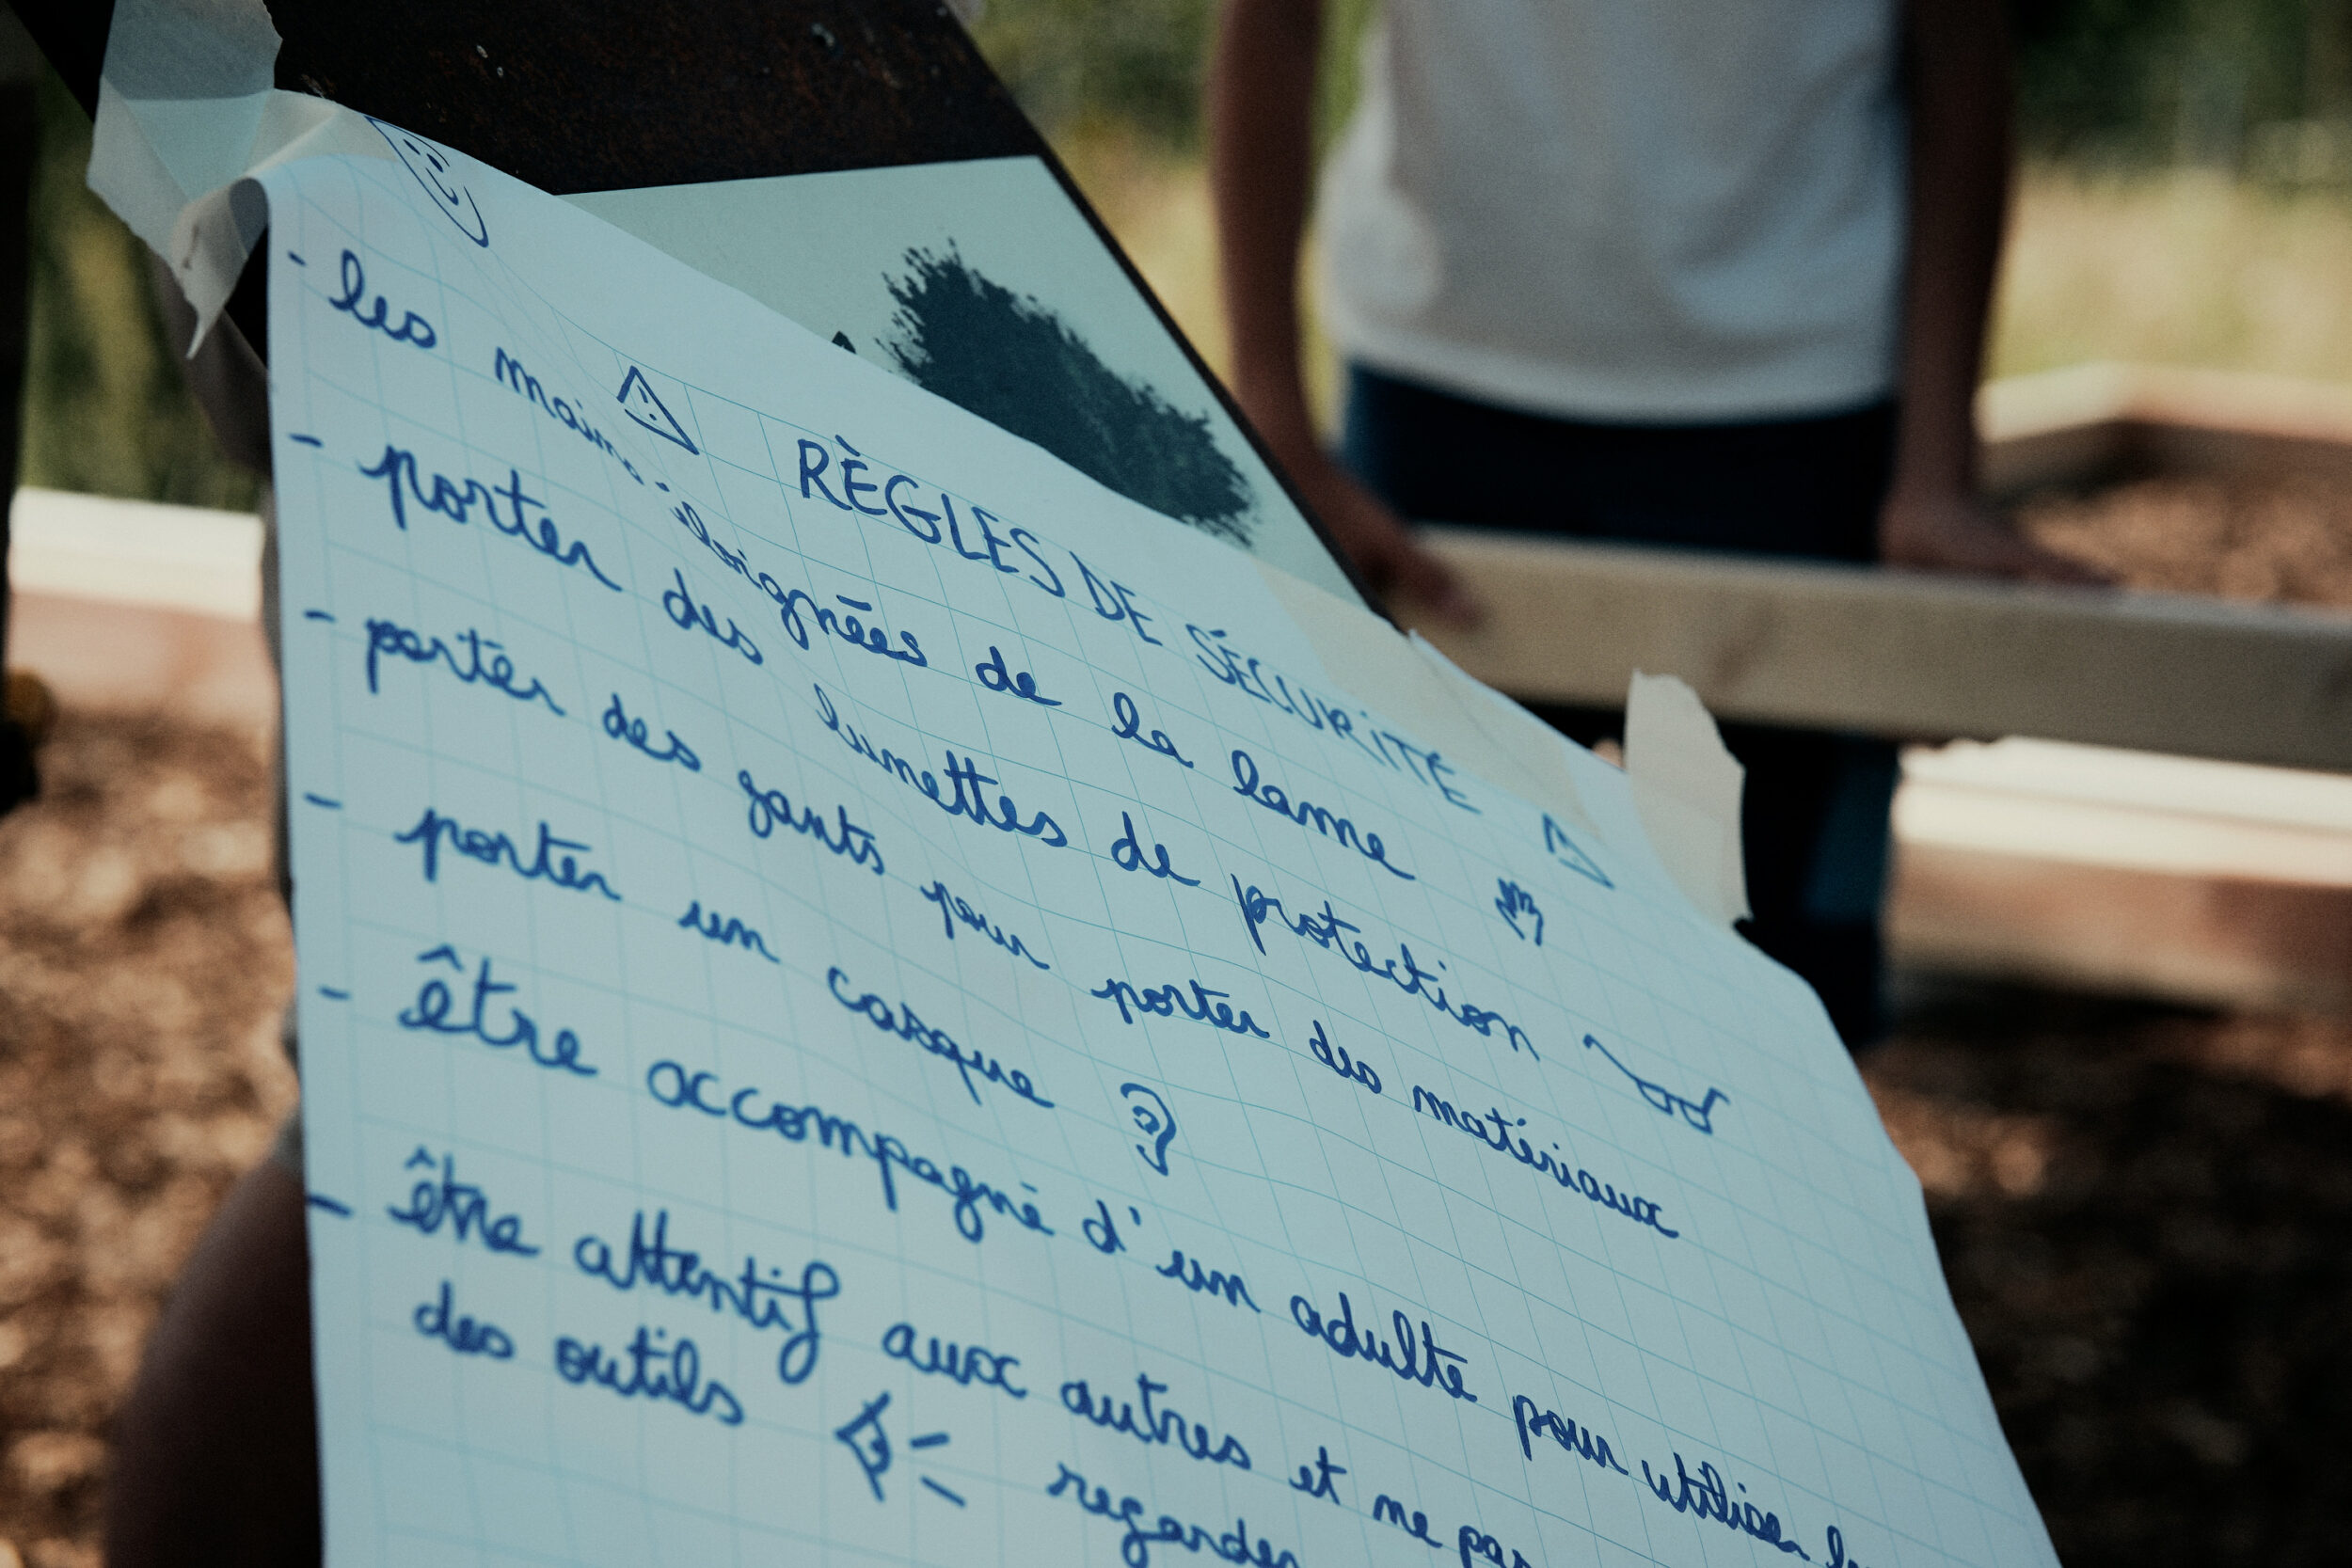 RÈGLES DE SÉCURITÉ
- les mains éloignées de la lame
- porter des lunettes de protection
- porter des gants pour porter des matériaux
- porter un casque
- être accompagné d'un adulte pour utiliser
- être attentif aux autres et ne pas
des outils regarder